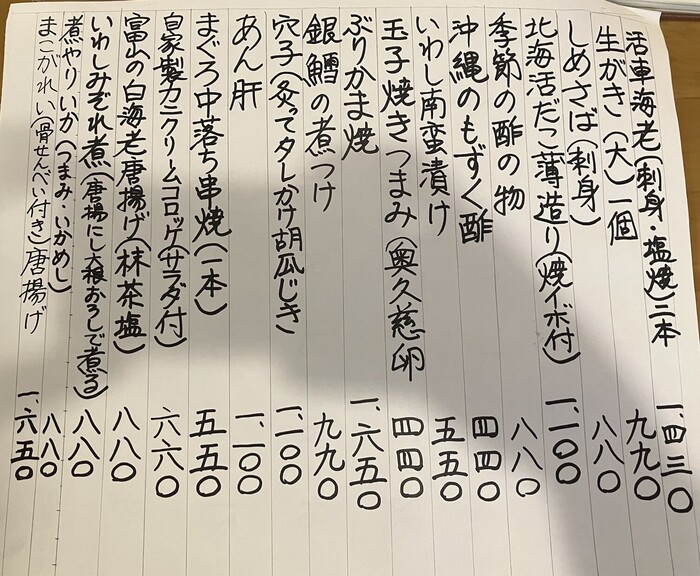 活車海老(刺身・塩焼)二本 一、四三〇
生がき(大)一個 九九〇
しめさば(刺身) 八八〇
北海活だこ薄造り(焼イボ付) 一、一〇〇
季節の酢の物 八八〇
沖縄のもずく酢 四四〇
いわし南蛮漬け 五五〇
玉子焼きつまみ(奥久慈卵 四四〇
ぶりかま焼 一、六五〇
銀鱈の煮つけ 九九〇
穴子(炙ってタレかけ胡瓜じき) 一、一〇〇
あん肝 一、一〇〇
まぐろ中落ち串焼(一本) 五五〇
自家製カニクリームコロッケ(サラダ付) 六六〇
富山の白海老唐揚げ(抹茶塩) 八八〇
いわしみぞれ煮(唐揚にし大根おろしで煮る) 八八〇
煮やりいか(つまみ・いかめし) 八八〇
まこがれい(骨せんべい付き)唐揚げ 一、六五〇